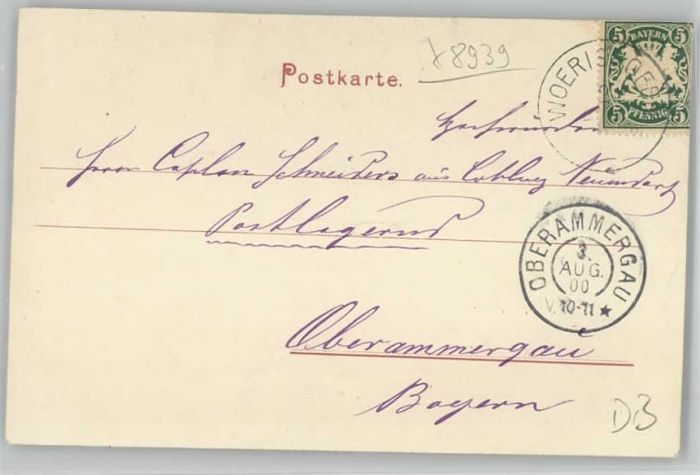 x8939
Postkarte.
5 BAYERN 5
5 PFENNIG 5
WOERISH
Herrn Caplan Schneiders aus Coblenz
Postlagernd
OBERAMMERGAU
3.
AUG.
00
V.10-11 ★
Oberammergau
Bayern
DB